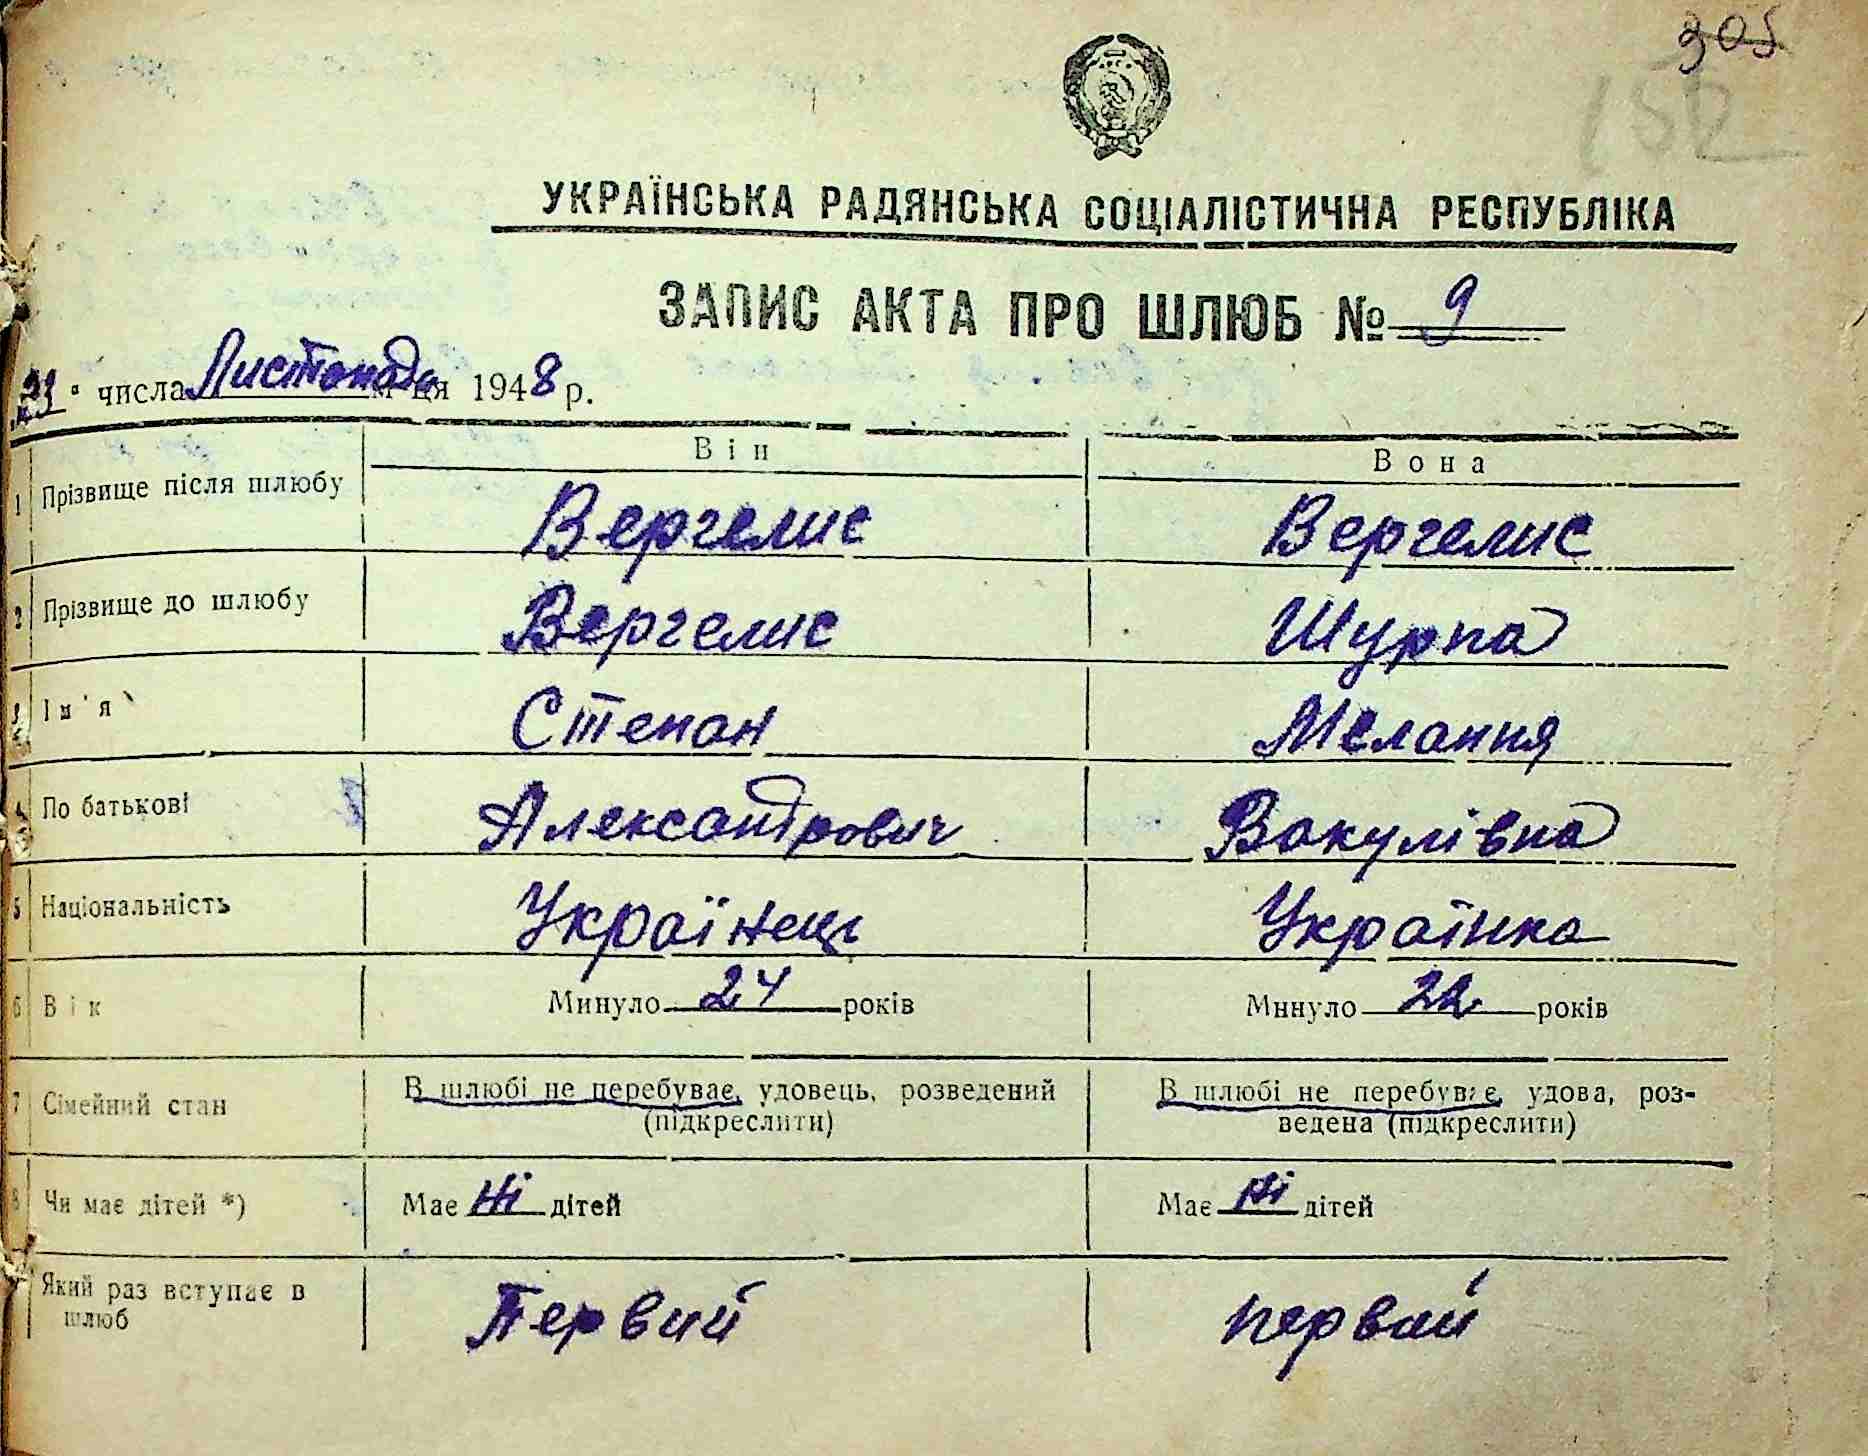 305
152
УКРАЇНСЬКА РАДЯНСЬКА СОЦІАЛІСТИЧНА РЕСПУБЛІКА
ЗАПИС АКТА ПРО ШЛЮБ № 9
числа Листопада м-ця 1948 р.
Він Вона
1 Прізвище після шлюбу Вергелис Вергелис
2 Прізвище до шлюбу Вергелис Шурпа
3 Ім'я Степан Мелання
4 По батькові Александрович Вакулівна
5 Національність Українець Українка
6 Вік Минуло 24 років Минуло 22 років
7 Сімейний стан В шлюбі не перебуває, удовець, розведений В шлюбі не перебуває, удова, роз-
(підкреслити) ведена (підкреслити)
8 Чи має дітей *) Має Ні дітей Має Ні дітей
Який раз вступає в
шлюб Первий первий